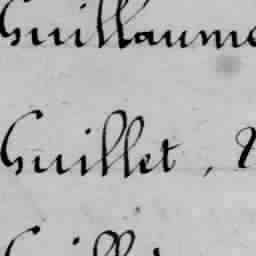 Guillaume
Guillet,